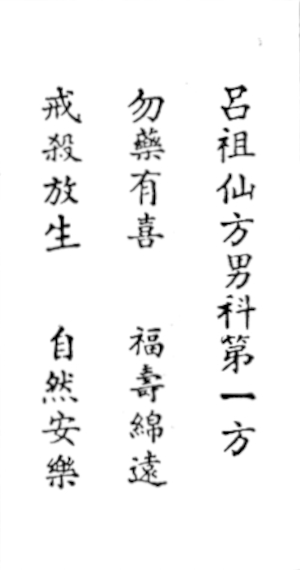 呂祖仙方男科第一方
勿藥有喜 福壽綿遠
戒殺放生 自然安樂